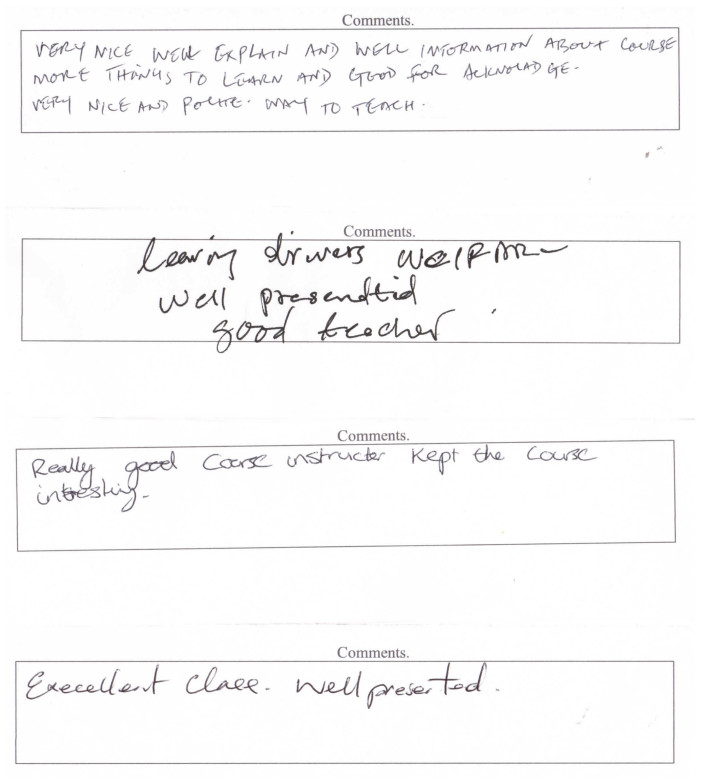 Comments.
VERY NICE WELL EXPLAIN AND WELL INFORMATION ABOUT COURSE
MORE THINGS TO LEARN AND GOOD FOR ACKNOLADGE.
VERY NICE AND POLITE. WAY TO TEACH.
Comments.
drivers WELFAR
well presendtid
good teacher
Comments.
Really good Course instructor Kept the Course
intresting.
Comments.
Execellent Class. Well presented.